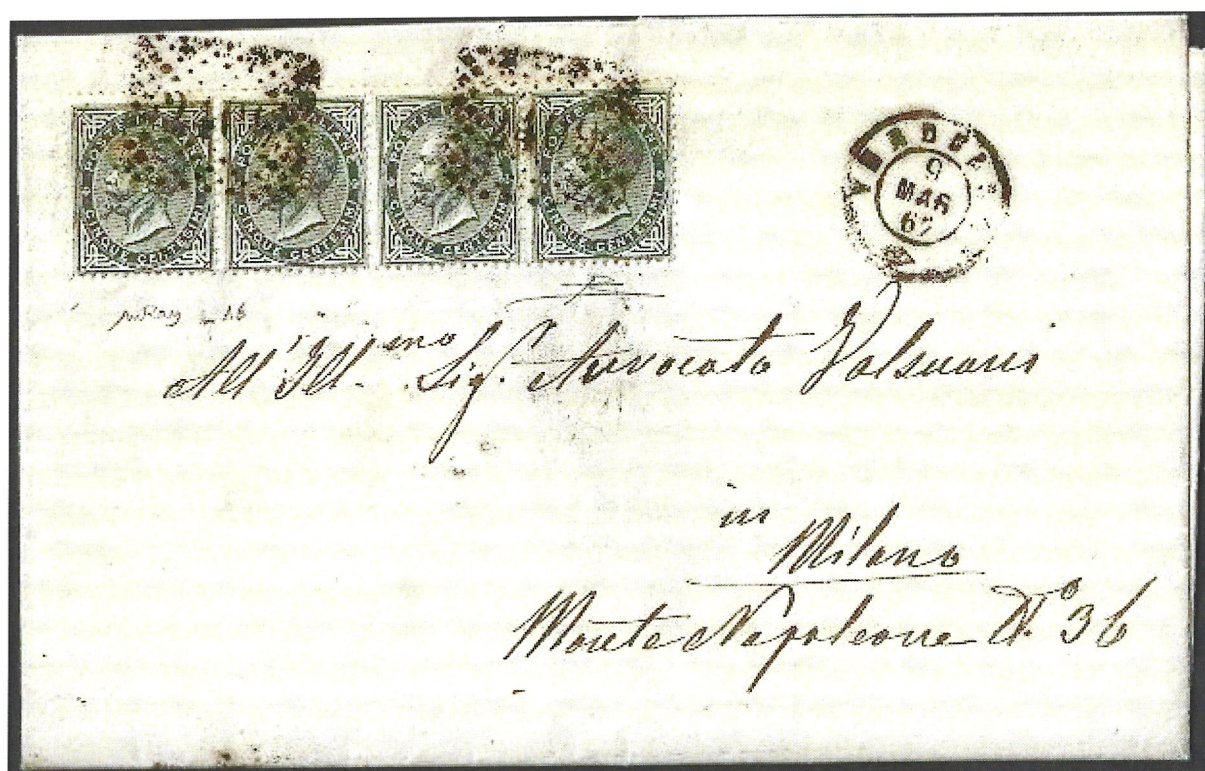 POSTE ITALIANE
CINQUE CENTESIMI
POSTE ITALIANE
CINQUE CENTESIMI
POSTE ITALIANE
CINQUE CENTESIMI
POSTE ITALIANE
CINQUE CENTESIMI
9
MAR
67
All'Ill.mo Sig.r Avvocato Valsuani
in
Milano
Monte Napoleone N.o 36